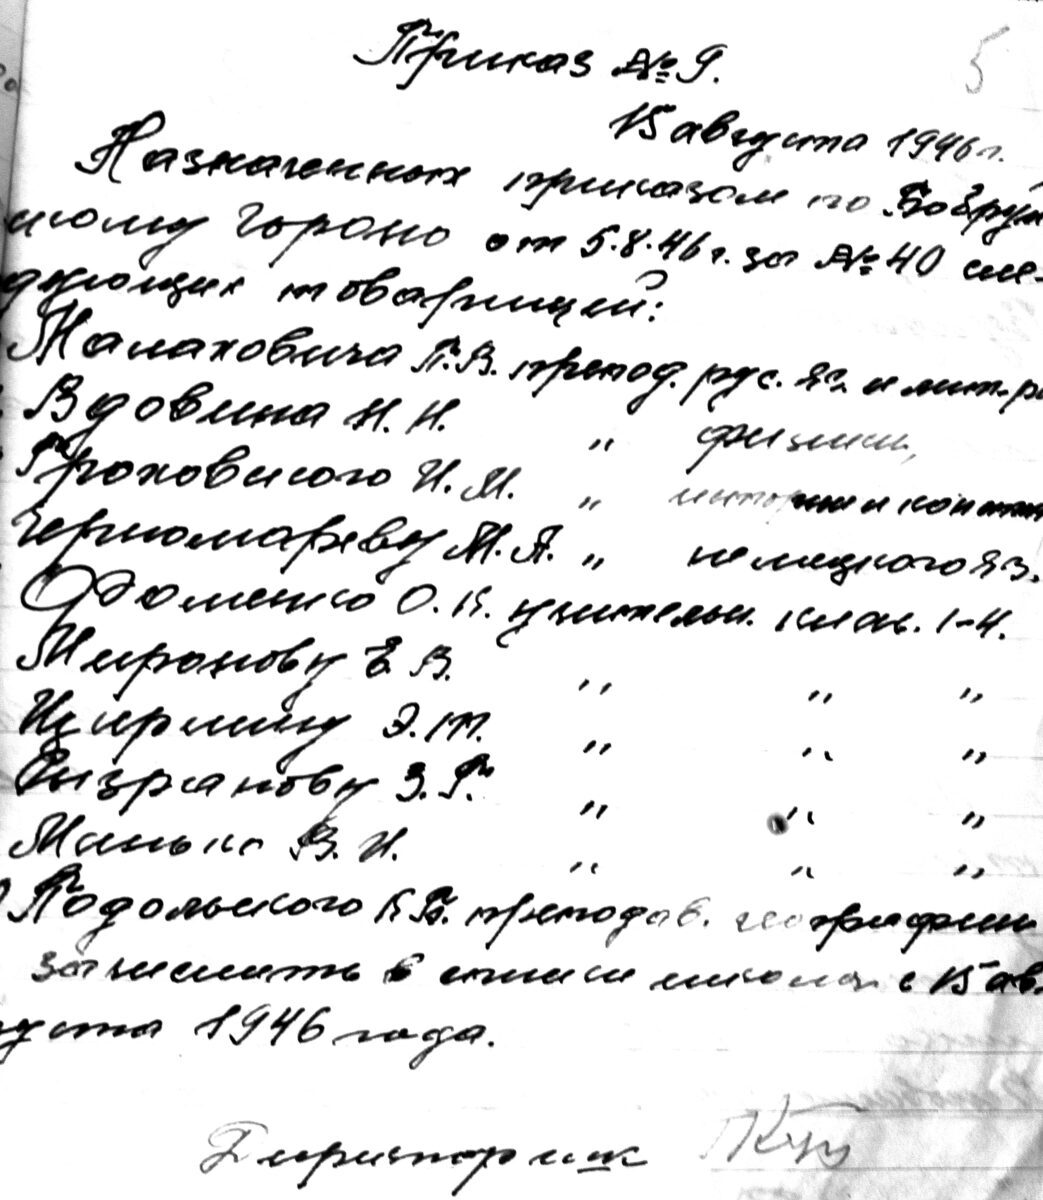 5
Приказ № 9.
15 августа 1946 г.
Назначенных приказом по Бобруй
скому Гороно от 5.8.46 г. за № 40 сле-
дующих товарищей:
Малаховича П.В. препод. рус. яз. и лит-ры
Вдовина Н.Н. " физики,
Гроховского И.М. " истории и констит
Черномареву М.А. " немецкого яз.
О.К. учительн. клас. 1-4.
Миронову Е.В. " " "
Цирлину Э.М. " " "
Сызранову З.Г. " " "
Манько В.И. " " "
Подольского К.Б. преподав. географии
зачислить в списки школы с 15 ав-
густа 1946 года.
Директор